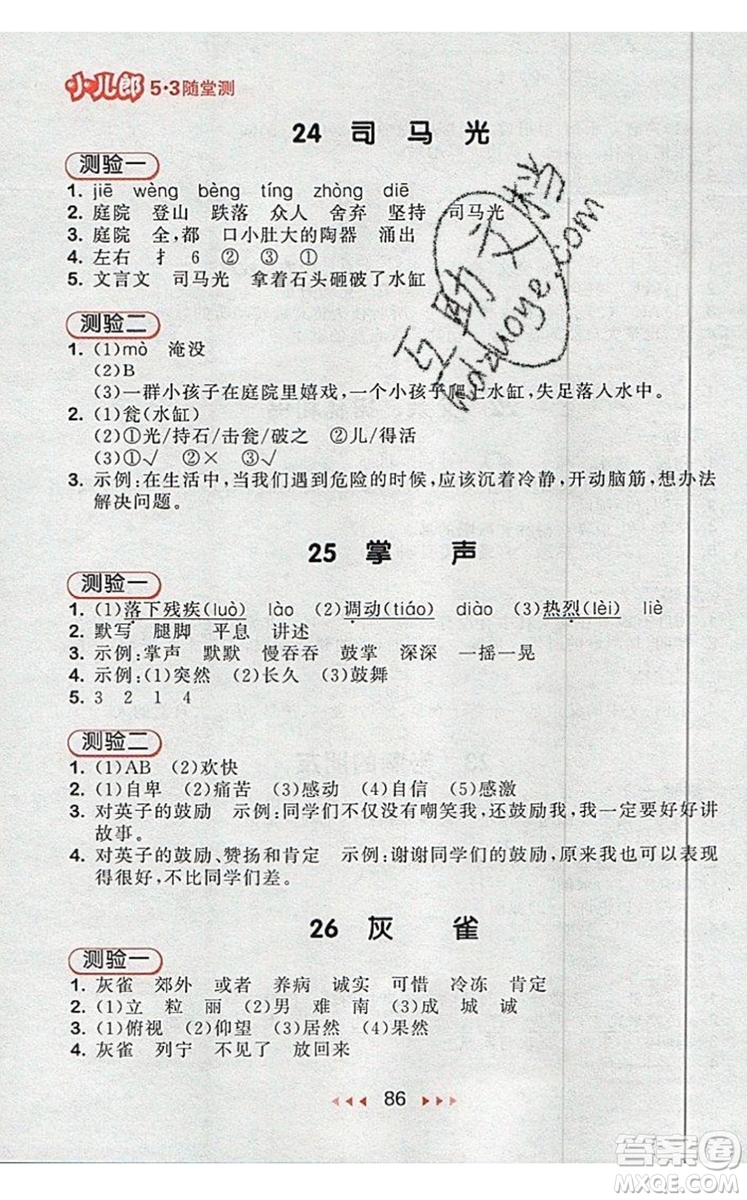 小儿郎 5·3随堂测
24 司马光
测验一
1. jiē wèng bèng tíng zhòng diē
2. 庭院 登山 跌落 众人 舍弃 坚持 司马光
3. 庭院 全,都 口小肚大的陶器 涌出
4. 左右 扌 6 ② ③ ①
5. 文言文 司马光 拿着石头砸破了水缸
测验二
1. (1)mò 淹没
(2)B
(3)一群小孩子在庭院里嬉戏,一个小孩子爬上水缸,失足落入水中。
2. (1)瓮(水缸)
(2)①光/持石/击瓮/破之 ②儿/得活
(3)①√ ②× ③√
3. 示例:在生活中,当我们遇到危险的时候,应该沉着冷静,开动脑筋,想办法
解决问题。
25 掌声
测验一
1. (1)落下残疾(luò) lào (2)调动(tiáo) diào (3)热烈(lèi) liè
2. 默写 腿脚 平息 讲述
3. 示例:掌声 默默 慢吞吞 鼓掌 深深 一摇一晃
4. 示例:(1)突然 (2)长久 (3)鼓舞
5. 3 2 1 4
测验二
1. (1)AB (2)欢快
2. (1)自卑 (2)痛苦 (3)感动 (4)自信 (5)感激
3. 对英子的鼓励 示例:同学们不仅没有嘲笑我,还鼓励我,我一定要好好讲
故事。
4. 对英子的鼓励、赞扬和肯定 示例:谢谢同学们的鼓励,原来我也可以表现
得很好,不比同学们差。
26 灰雀
测验一
1. 灰雀 郊外 或者 养病 诚实 可惜 冷冻 肯定
2. (1)立 粒 丽 (2)男 难 南 (3)成 城 诚
3. (1)俯视 (2)仰望 (3)居然 (4)果然
4. 灰雀 列宁 不见了 放回来
86
互助文档
hdzuoye.com
答案圈
MXQE.COM